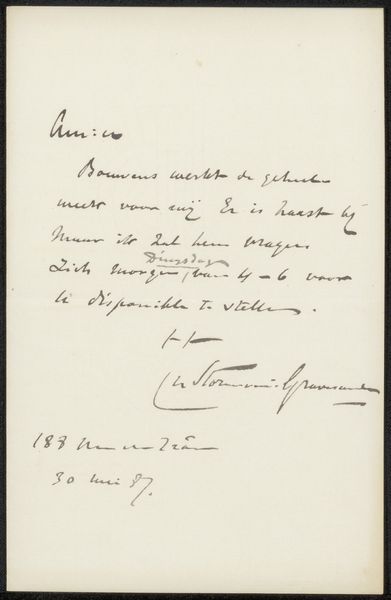 Bouvens werkt de geheele
week voor mij Er is haast bij
Maar ik zal hem vragen
Dingsdag
zich morgen, van 4-6 voor
U disponible te stellen.
tt
Storm van 's Gravesande
188
30 mei 87.